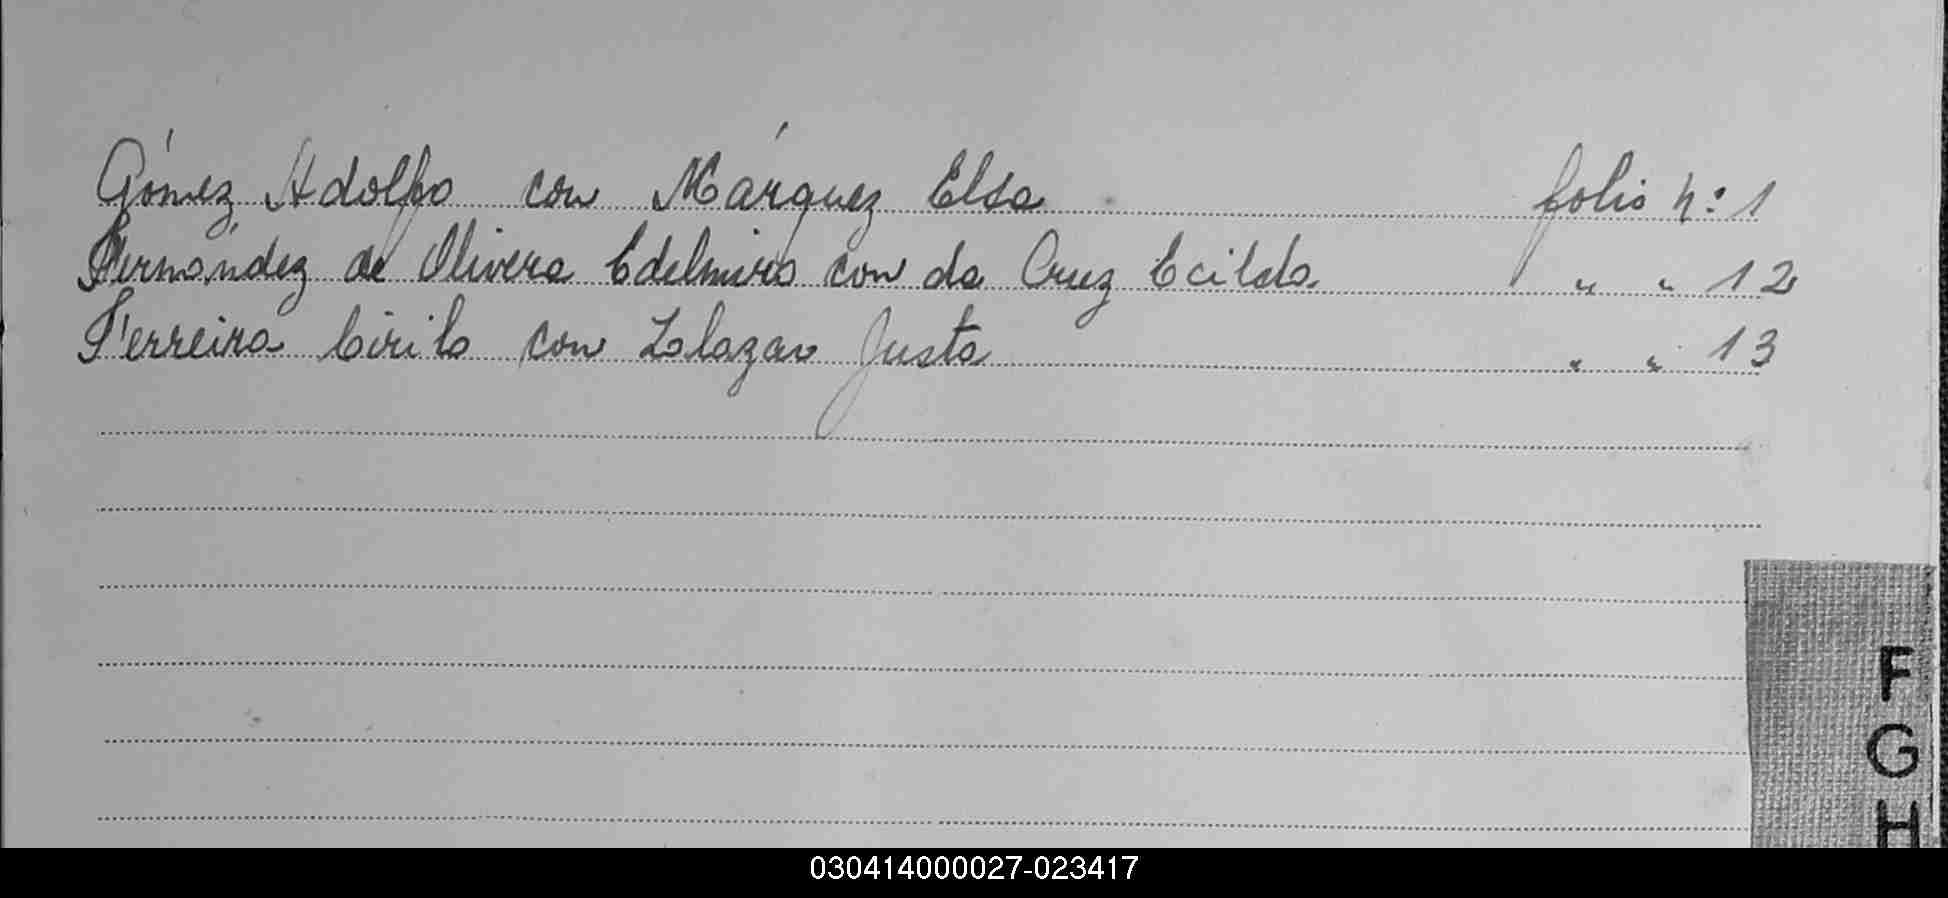 Gómez Adolfo con Márquez Elsa folio n: 1
Fernández de Olivera Edelmiro con da Cruz " " 12
Ferreira Cirilo con Justa " " 13
F
G
H
030414000027-023417